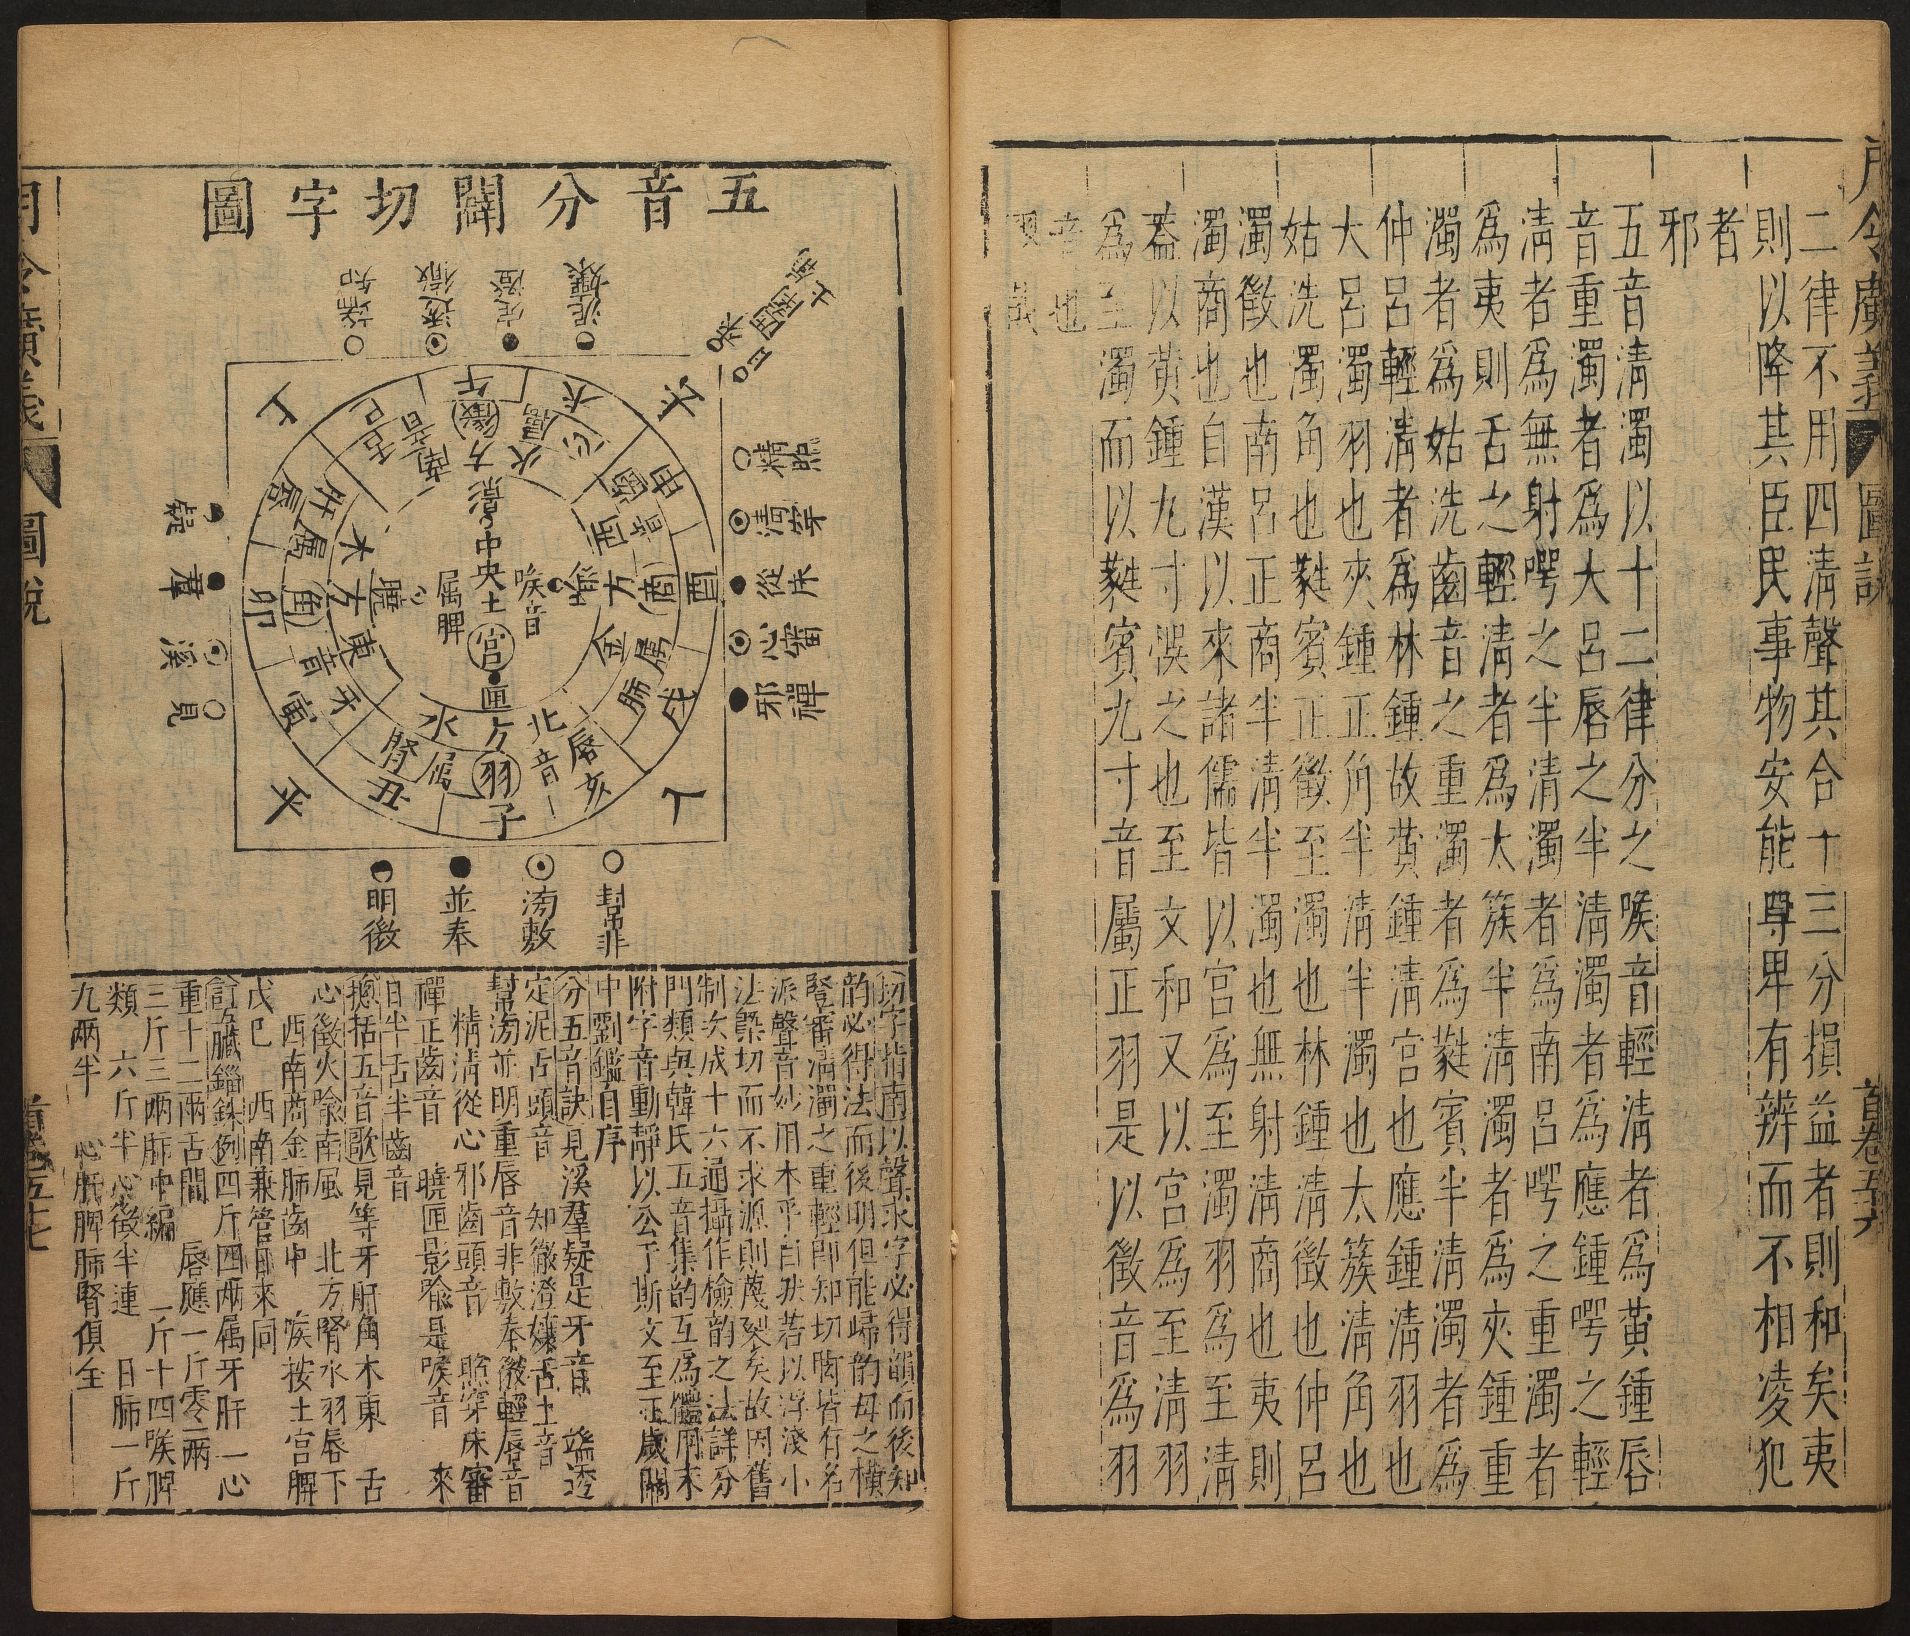 月令廣義
圖說
首卷 五十六
二律不用四清聲其合十三分損益者則和矣夷
則以降其臣民事物安能尊卑有辨而不相凌犯
者
邪
五音清濁以十二律分之喉音輕清者爲黃鍾唇
音重濁者爲大呂唇之半清濁者爲應鍾咢之輕
清者爲無射咢之半清濁者爲南呂咢之重濁者
爲夷則舌之輕清者爲太簇半清濁者爲夾鍾重
濁者爲姑洗齒音之重濁者爲蕤賓半清濁者爲
仲呂輕清者爲林鍾故黃鍾清宮也應鍾清羽也
大呂濁羽也夾鍾正角半清半濁也太簇清角也
姑洗濁角也蕤賓正徵至濁也林鍾清徵也仲呂
濁徵也南呂正商半清半濁也無射清商也夷則
濁商也自漢以來諸儒皆以宮爲至濁羽爲至清
蓋以黃鍾九寸誤之也至文和又以宮爲至清羽
爲至濁而以蕤賓九寸音屬正羽是以徵音爲羽
音也
月令廣義
圖說
首卷 五十七
五音分闢切字圖
端知
透徹
定澄
泥孃
來
日
精照
清穿
從床
心審
邪禪
幫非
滂敷
並奉
明微
見
溪
羣
疑
上
去
入
平
午
未
申
酉
戌
亥
子
丑
寅
卯
辰
巳
南方火徵舌音属心
西方金商齒音属肺
北方水羽唇音属腎
東方木角牙音属肝
中央土宮喉音属脾
影
曉
匣
喻
切字指南以聲求字必得韻而後知
韵必得法而後明但能歸韵母之橫
豎審清濁之重輕即知切脚皆有名
派聲音妙用本乎自然若以浮淺小
法槩切而不求源則蔑裂矣故因舊
制次成十六通攝作檢韵之法詳分
門類與韓氏五音集韵互爲體用末
附字音動靜以公于斯文至正歲關
中劉鑑自序
分五音訣見溪羣疑是牙音 端透
定泥舌頭音 知徹澄孃舌上音
幫滂並明重唇音非敷奉微輕唇音
精清從心邪齒頭音 照穿床審
禪正齒音 曉匣影喻是喉音 來
日半舌半齒音
揔括五音歌見等牙肝角木東 舌
心徵火喻南風 北方腎水羽唇下
西南商金肺齒中 喉按土宮脾
戊巳 西南兼管日來同
五臟錙銖例四斤四兩属牙肝 一心
重十二兩舌間 唇應一斤零二兩
三斤三兩肺中編 一斤十四喉脾
類 六斤半心徵半連 日肺一斤
九兩半 心肝脾肺腎俱全